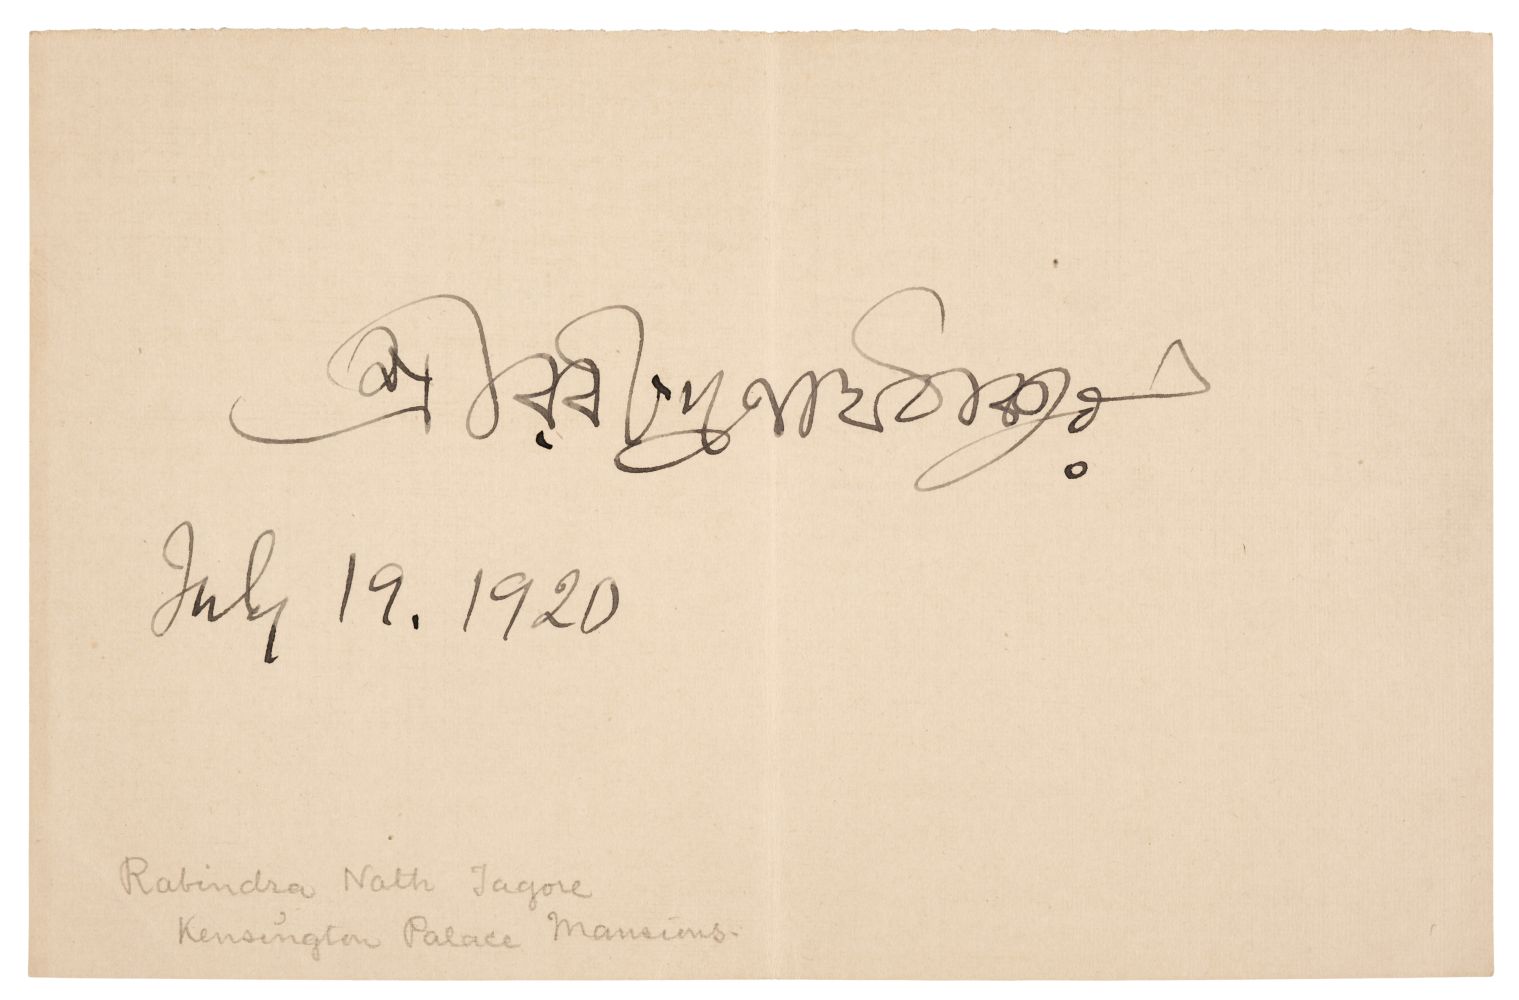 শ্রীরবীন্দ্রনাথ ঠাকুর
July 19. 1920
Rabindra Nath Tagore
Kensington Palace Mansions.